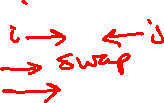 i → ← j
→ swap
→